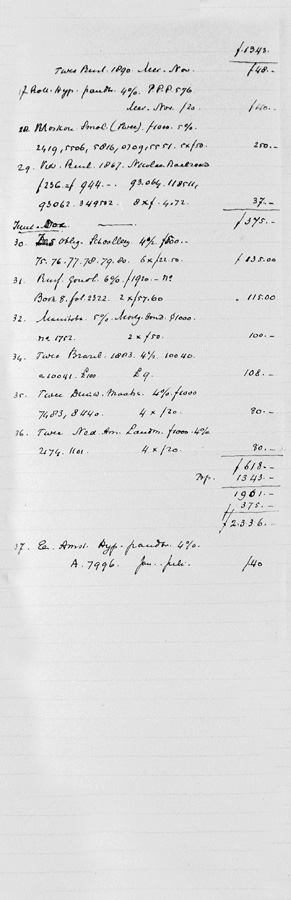 f 1343.-
Twee Rusl. 1890 Mei. Nov. f 48.-
27 Rott. Hyp. pandbr. 4% P.P.P. 576
Mei. Nov. f 20 f 40.-
28 Moskou Smol. (Twee) f 1000. 5%
2419, 5506, 5816, 0709, 5551. 5 x f 50. 250.-
29. Rusl. 1867. Nicolas Railroad
f 236. 944.- 93.064. 118511,
93062. 349502. 8 x f. 4.72. 37.-
f 375.-
30. Oblig. Schoollee 4½% f 500.-
75. 76. 77. 78. 79. 80. 6 x f 22.50 f 135.00
31. 6% f 1920.- no
Boek 8. fol 2322. 2 x f 57.60 " 115.00
32. Manitoba 5% Mortg. Bond $1000.
no 1752. 2 x f 50. 100.-
34. Twee Brazil. 1883. 4½% 10040.
a 10041. £100 £9. 108.-
35. Twee Maats. 4% f 1000
7483, 8440. 4 x f 20. 80.-
36. Twee Ned. Am. Landm. f 1000. 4%
2174. 1101. 4 x f 20. 80.-
f 618.-
Trsp. 1343.-
1961.-
375.-
f 2.336.-
37. Amst. Hyp. pandbr. 4%.
A. 7996. Jan. Juli. f 40